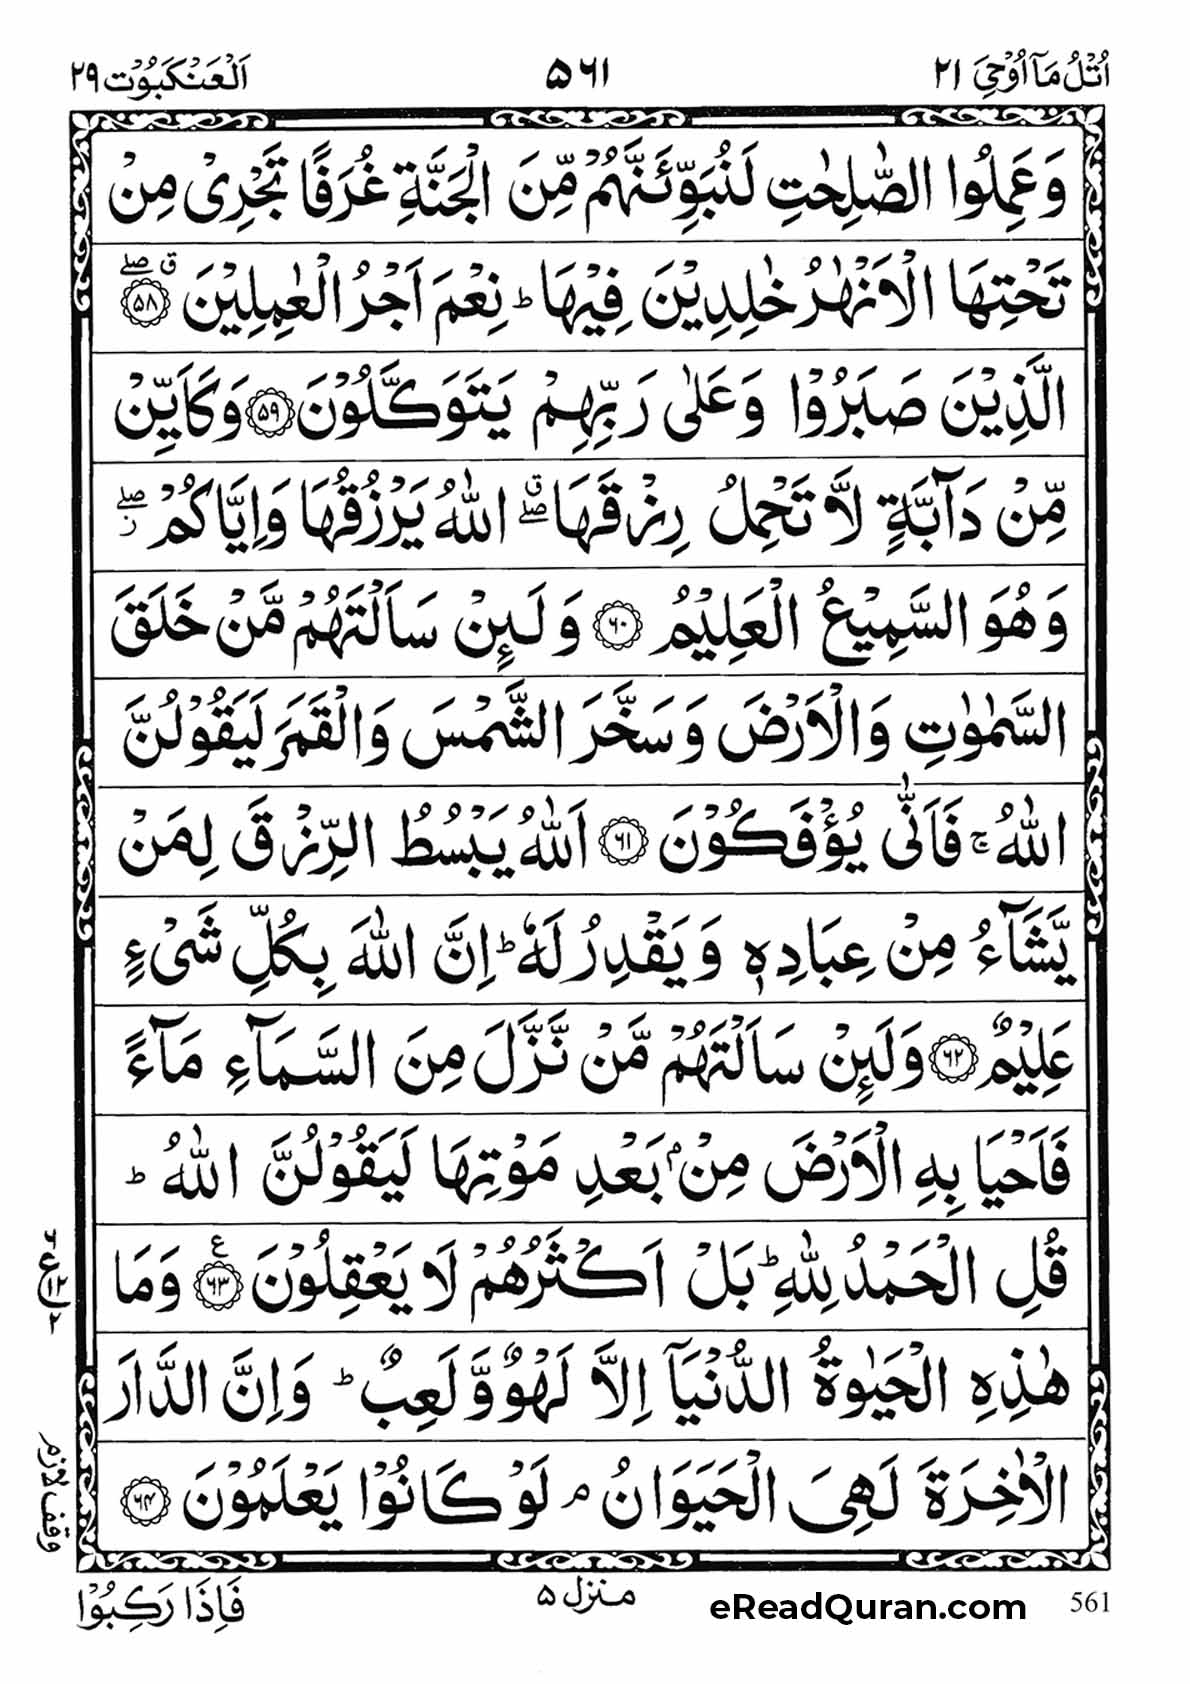 اُتْلُ مَآ اُوْحِیَ ٢١
٥٦١
اَلْعَنْكَبُوْت ٢٩
وَعَمِلُوا الصّٰلِحٰتِ لَنُبَوِّئَنَّهُمْ مِّنَ الْجَنَّةِ غُرَفًا تَجْرِیْ مِنْ
تَحْتِهَا الْاَنْهٰرُ خٰلِدِیْنَ فِیْهَا ؕ نِعْمَ اَجْرُ الْعٰمِلِیْنَ ۝٥٨ ۗۖ
الَّذِیْنَ صَبَرُوْا وَعَلٰی رَبِّهِمْ یَتَوَكَّلُوْنَ ۝٥٩ وَكَاَیِّنْ
مِّنْ دَآبَّةٍ لَّا تَحْمِلُ رِزْقَهَا ۗۖ اَللّٰهُ یَرْزُقُهَا وَاِیَّاكُمْ ۖز
وَهُوَ السَّمِیْعُ الْعَلِیْمُ ۝٦٠ وَلَىِٕنْ سَاَلْتَهُمْ مَّنْ خَلَقَ
السَّمٰوٰتِ وَالْاَرْضَ وَسَخَّرَ الشَّمْسَ وَالْقَمَرَ لَیَقُوْلُنَّ
اللّٰهُ ۚ فَاَنّٰی یُؤْفَكُوْنَ ۝٦١ اَللّٰهُ یَبْسُطُ الرِّزْقَ لِمَنْ
یَّشَآءُ مِنْ عِبَادِهٖ وَیَقْدِرُ لَهٗ ؕ اِنَّ اللّٰهَ بِكُلِّ شَیْءٍ
عَلِیْمٌ ۝٦٢ وَلَىِٕنْ سَاَلْتَهُمْ مَّنْ نَّزَّلَ مِنَ السَّمَآءِ مَآءً
فَاَحْیَا بِهِ الْاَرْضَ مِنْۢ بَعْدِ مَوْتِهَا لَیَقُوْلُنَّ اللّٰهُ ؕ
قُلِ الْحَمْدُ لِلّٰهِ ؕ بَلْ اَكْثَرُهُمْ لَا یَعْقِلُوْنَ ۝٦٣ ع وَمَا
هٰذِهِ الْحَیٰوةُ الدُّنْیَاۤ اِلَّا لَهْوٌ وَّلَعِبٌ ؕ وَاِنَّ الدَّارَ
الْاٰخِرَةَ لَهِیَ الْحَیَوَانُ ۘ لَوْ كَانُوْا یَعْلَمُوْنَ ۝٦٤
وقف لازم
561
eReadQuran.com
منزل ٥
فَاِذَا رَكِبُوْا